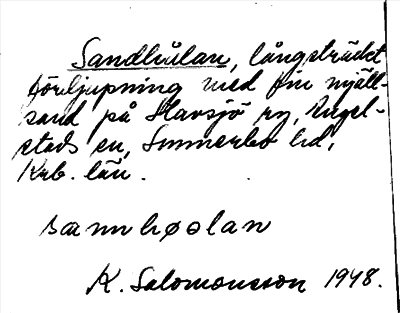 Sandhålan, långsträckt
fördjupning med fin mjäll-
sand på Havsjö ry, Angel-
stads sn, Sunnerbo hd,
Krb. län.
sannhøolan
K. Salomonsson 1948.